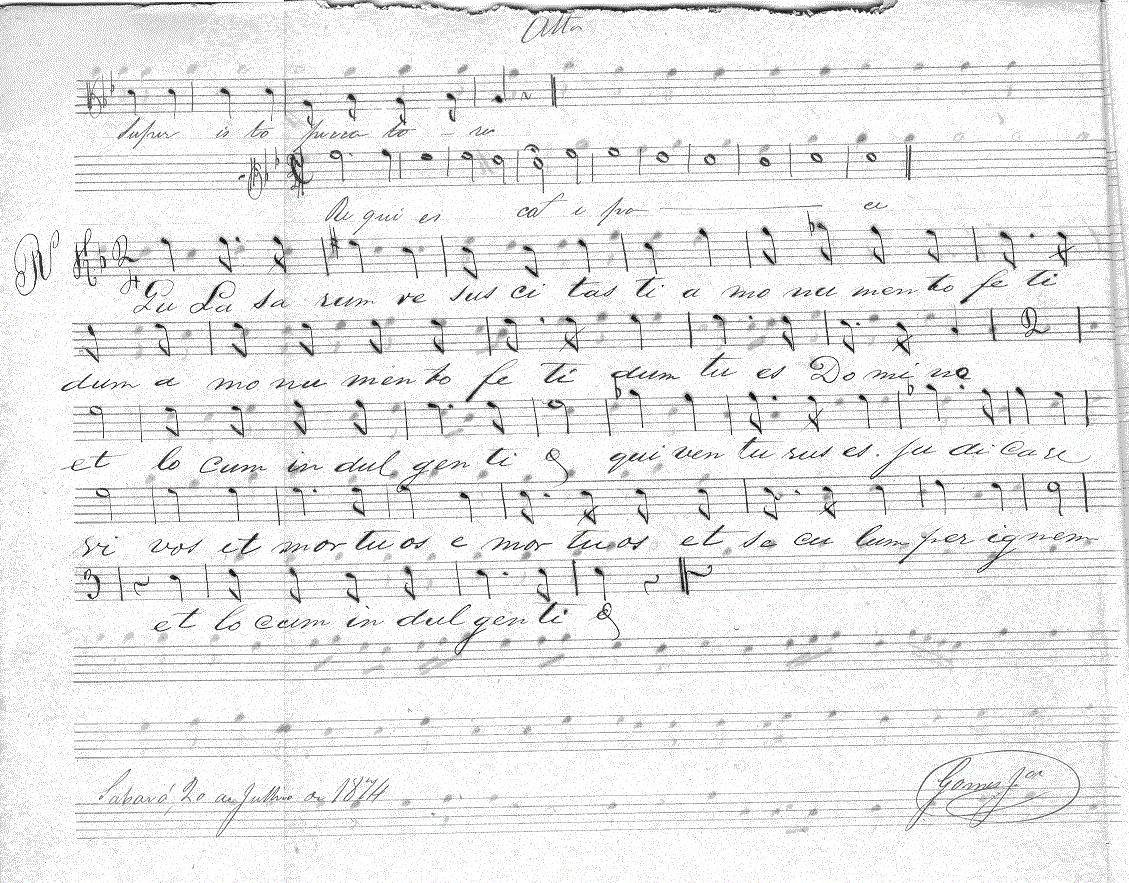 Alto
Super is to pecca to - re
Re qui es cat i pa ce
R/
2/4
Qui La sa rum re sus ci tas ti a mo nu men to fe ti
dum a mo nu men to fe ti dum tu es Do mi ne
et lo cum in dul gen ti a qui ven tu rus es. Ju di care
vi vos et mor tu os e mor tu os et se cu lum per ignem
3
et lo cum in dul gen ti a
Sabará, 20 de Julho de 1874
Gomes Jor